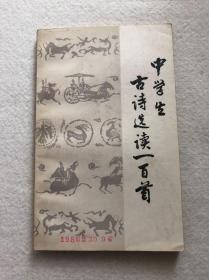 中学生
古诗选读一百首